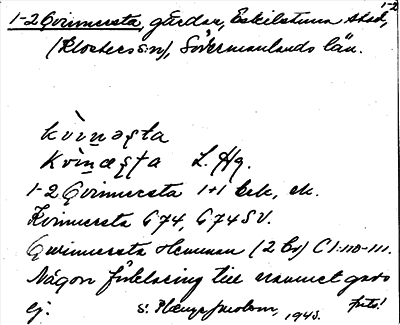 1-2
1-2 Qvinnersta, gårdar, Eskilstuna stad,
(Klosters sn), Södermanlands län.
kvìnəṣta
kvìnæṣta L. Hg.
1-2 Qvinnersta 1+1 bek, ek.
Kvinnersta G74, G74 SV.
Qwinnersta Hemman (2 bs) C1:110-111.
Någon förklaring till namnet gavs
ej. s: 1943. foto!